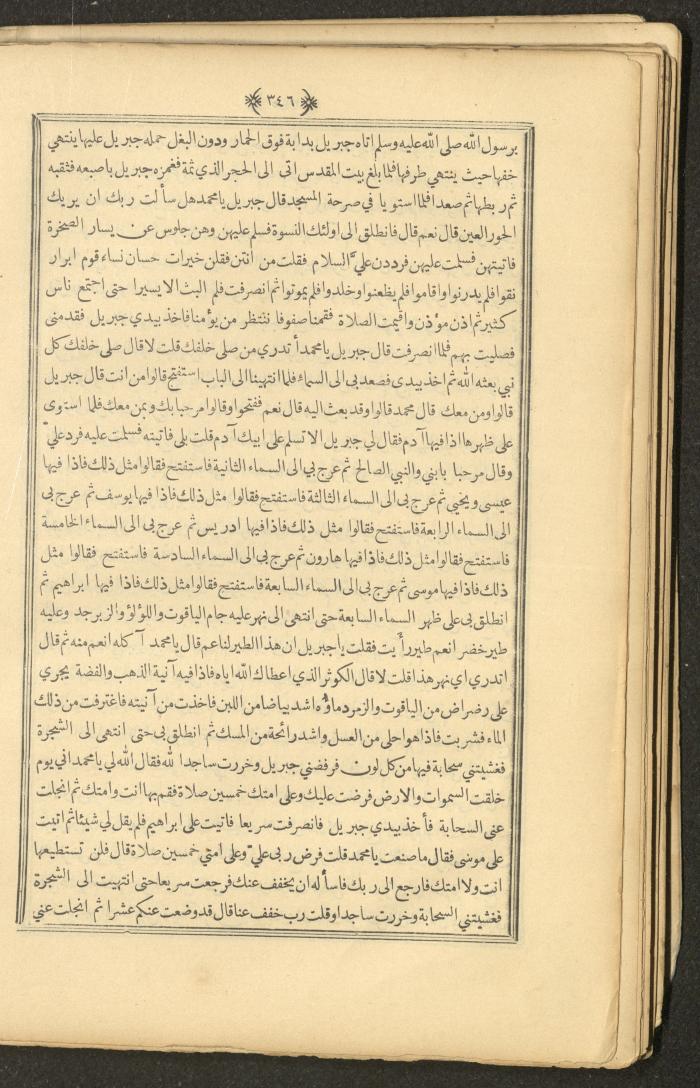 ٣٤٦
برسول الله صلى الله عليه وسلم اتاه جبريل بدابة فوق الحمار ودون البغل حمله جبريل عليها ينتهي
خفها حيث ينتهي طرفها فلما بلغ بيت المقدس اتى الى الحجر الذي ثمة فغمزه جبريل باصبعه فثقبه
ثم ربطها ثم صعدا فلما استويا في صرحة المسجد قال جبريل يا محمد هل سألت ربك ان يريك
الحور العين قال نعم قال فانطلق الى اولئك النسوة فسلم عليهن وهن جلوس عن يسار الصخرة
فاتيتهن فسلمت عليهن فرددن علىّ السلام فقلت من انتن فقلن خيرات حسان نساء قوم ابرار
نقوا فلم يدرنوا واقاموا فلم يظعنوا وخلدوا فلم يموتوا ثم انصرفت فلم البث الا يسيرا حتى اجتمع ناس
كثير ثم اذن مؤذن واقيمت الصلاة فقمنا صفوفا ننتظر من يؤمنا فاخذ بيدي جبريل فقدمنى
فصليت بهم فلما انصرفت قال جبريل يا محمد أتدري من صلى خلفك قلت لا قال صلى خلفك كل
نبي بعثه الله ثم اخذ بيدى فصعد بى الى السماء فلما انتهينا الى الباب استفتح قالوا من انت قال جبريل
قالوا ومن معك قال محمد قالوا وقد بعث اليه قال نعم ففتحوا وقالوا مرحبا بك وبمن معك فلما استوى
على ظهرها اذا فيها آدم فقال لي جبريل الا تسلم على ابيك آدم قلت بلى فاتيته فسلمت عليه فرد علىّ
وقال مرحبا بابني والنبي الصالح ثم عرج بي الى السماء الثانية فاستفتح فقالوا مثل ذلك فاذا فيها
عيسى ويحيي ثم عرج بى الى السماء الثالثة فاستفتح فقالوا مثل ذلك فاذا فيها يوسف ثم عرج بى
الى السماء الرابعة فاستفتح فقالوا مثل ذلك فاذا فيها ادريس ثم عرج بى الى السماء الخامسة
فاستفتح فقالوا مثل ذلك فاذا فيها هارون ثم عرج بى الى السماء السادسة فاستفتح فقالوا مثل
ذلك فاذا فيها موسى ثم عرج بى الى السماء السابعة فاستفتح فقالوا مثل ذلك فاذا فيها ابراهيم ثم
انطلق بى على ظهر السماء السابعة حتى انتهى الى نهر عليه جام الياقوت واللؤلؤ والزبرجد وعليه
طير خضر انعم طير رأيت فقلت يا جبريل ان هذا الطير لناعم قال يا محمد آكله انعم منه ثم قال
اتدري اي نهر هذا قلت لا قال الكوثر الذي اعطاك الله اياه فاذا فيه آنية الذهب والفضة يجري
على رضراض من الياقوت والزمرد ماؤه اشد بياضا من اللبن فاخذت من آنيته فاغترفت من ذلك
الماء فشربت فاذا هو احلى من العسل واشد رائحة من المسك ثم انطلق بى حتى انتهى الى الشجرة
فغشيتني سحابة فيها من كل لون فرفضني جبريل وخررت ساجدا لله فقال الله لي يا محمد اني يوم
خلقت السموات والارض فرضت عليك وعلى امتك خمسين صلاة فقم بها انت وامتك ثم انجلت
عنى السحابة فأخذ بيدي جبريل فانصرفت سريعا فاتيت على ابراهيم فلم يقل لي شيئا ثم اتيت
على موسى فقال ما صنعت يا محمد قلت فرض ربى علىّ وعلى امتي خمسين صلاة قال فلن تستطيعها
انت ولا امتك فارجع الى ربك فاسأله ان يخفف عنك فرجعت سريعا حتى انتهيت الى الشجرة
فغشيتني السحابة وخررت ساجدا وقلت رب خفف عنا قال قد وضعت عنكم عشرا ثم انجلت عني